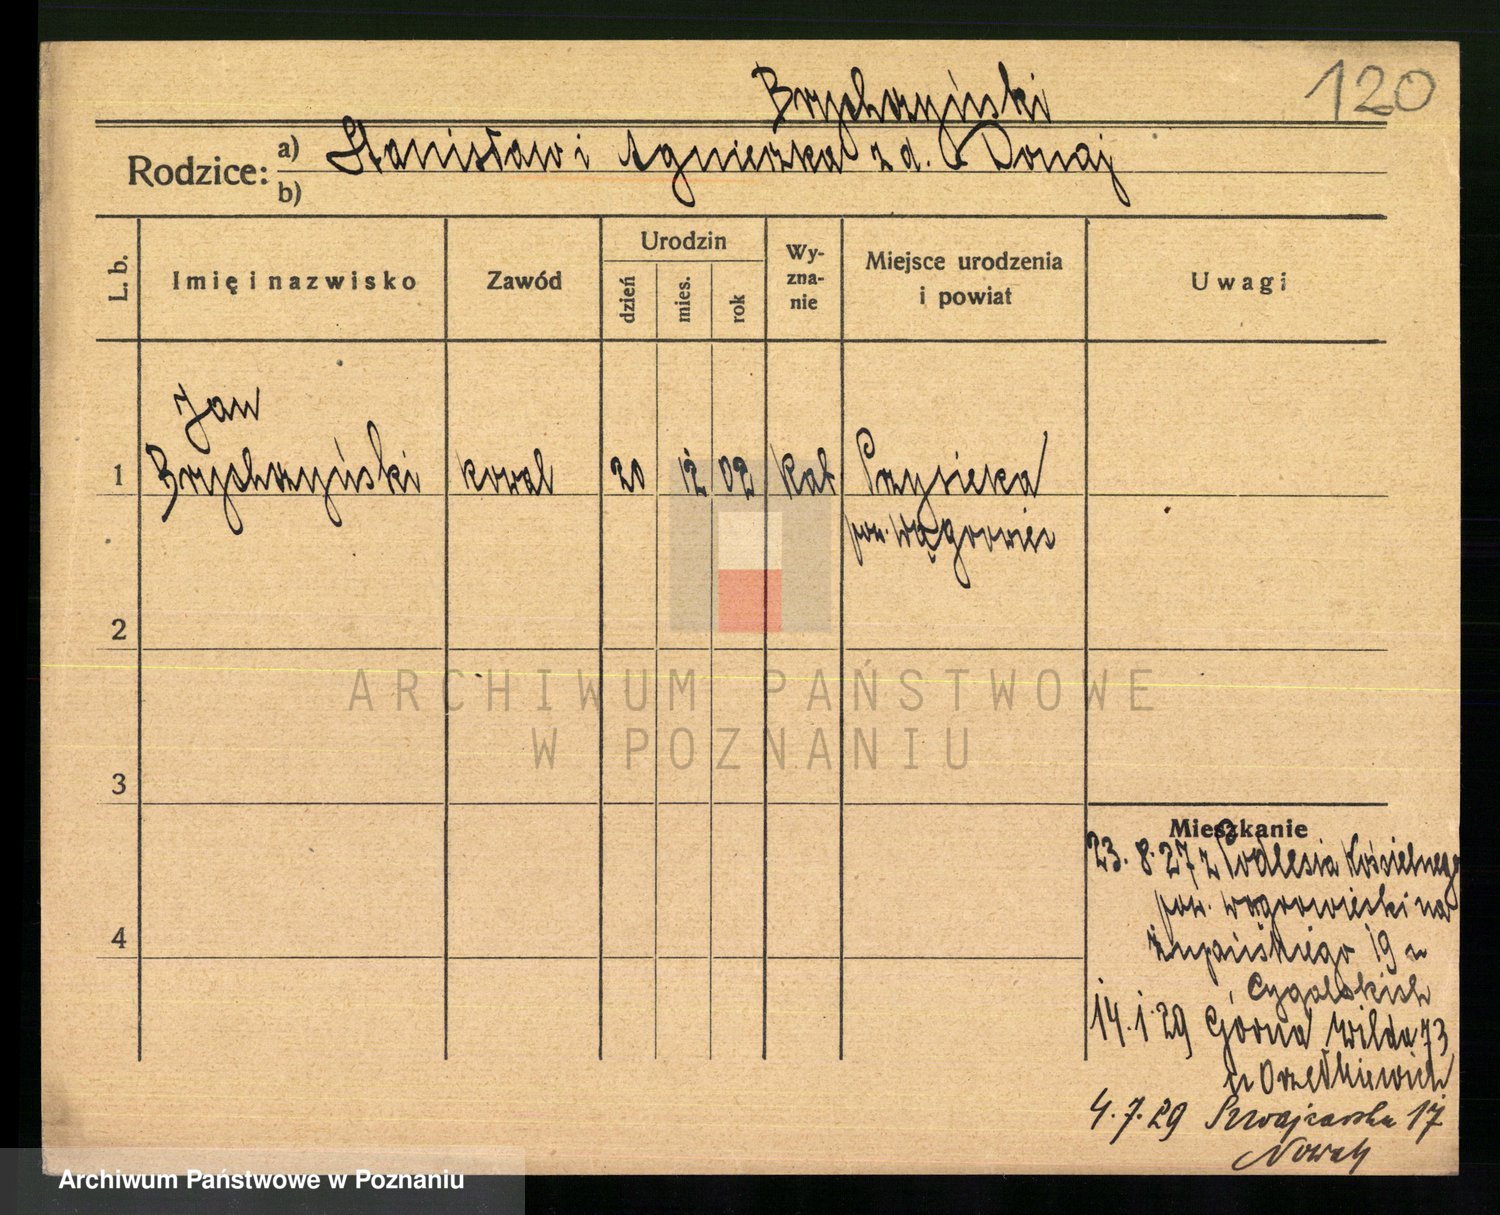 Brychzyński
120
Rodzice: a) Stanisław i Agnieszka z d. Donaj
b)
L. b.
Imię i nazwisko
Zawód
Urodzin
dzień
mies.
rok
Wy-
zna-
nie
Miejsce urodzenia
i powiat
Uwagi
Jan
1 Brychzyński kowal 20 12 02 kat Przysieka
pow. Wągrowiec
2
3
4
ARCHIWUM PAŃSTWOWE
W POZNANIU
Mieszkanie
23. 8. 27 z Podlesia Kościelnego
pow. wągrowiecki na
Żupańskiego 19 u
Cygalskich
14. 1. 29 Górna Wilda 73
u
4. 7. 29 Szwajcarska 17
Nowak
Archiwum Państwowe w Poznaniu